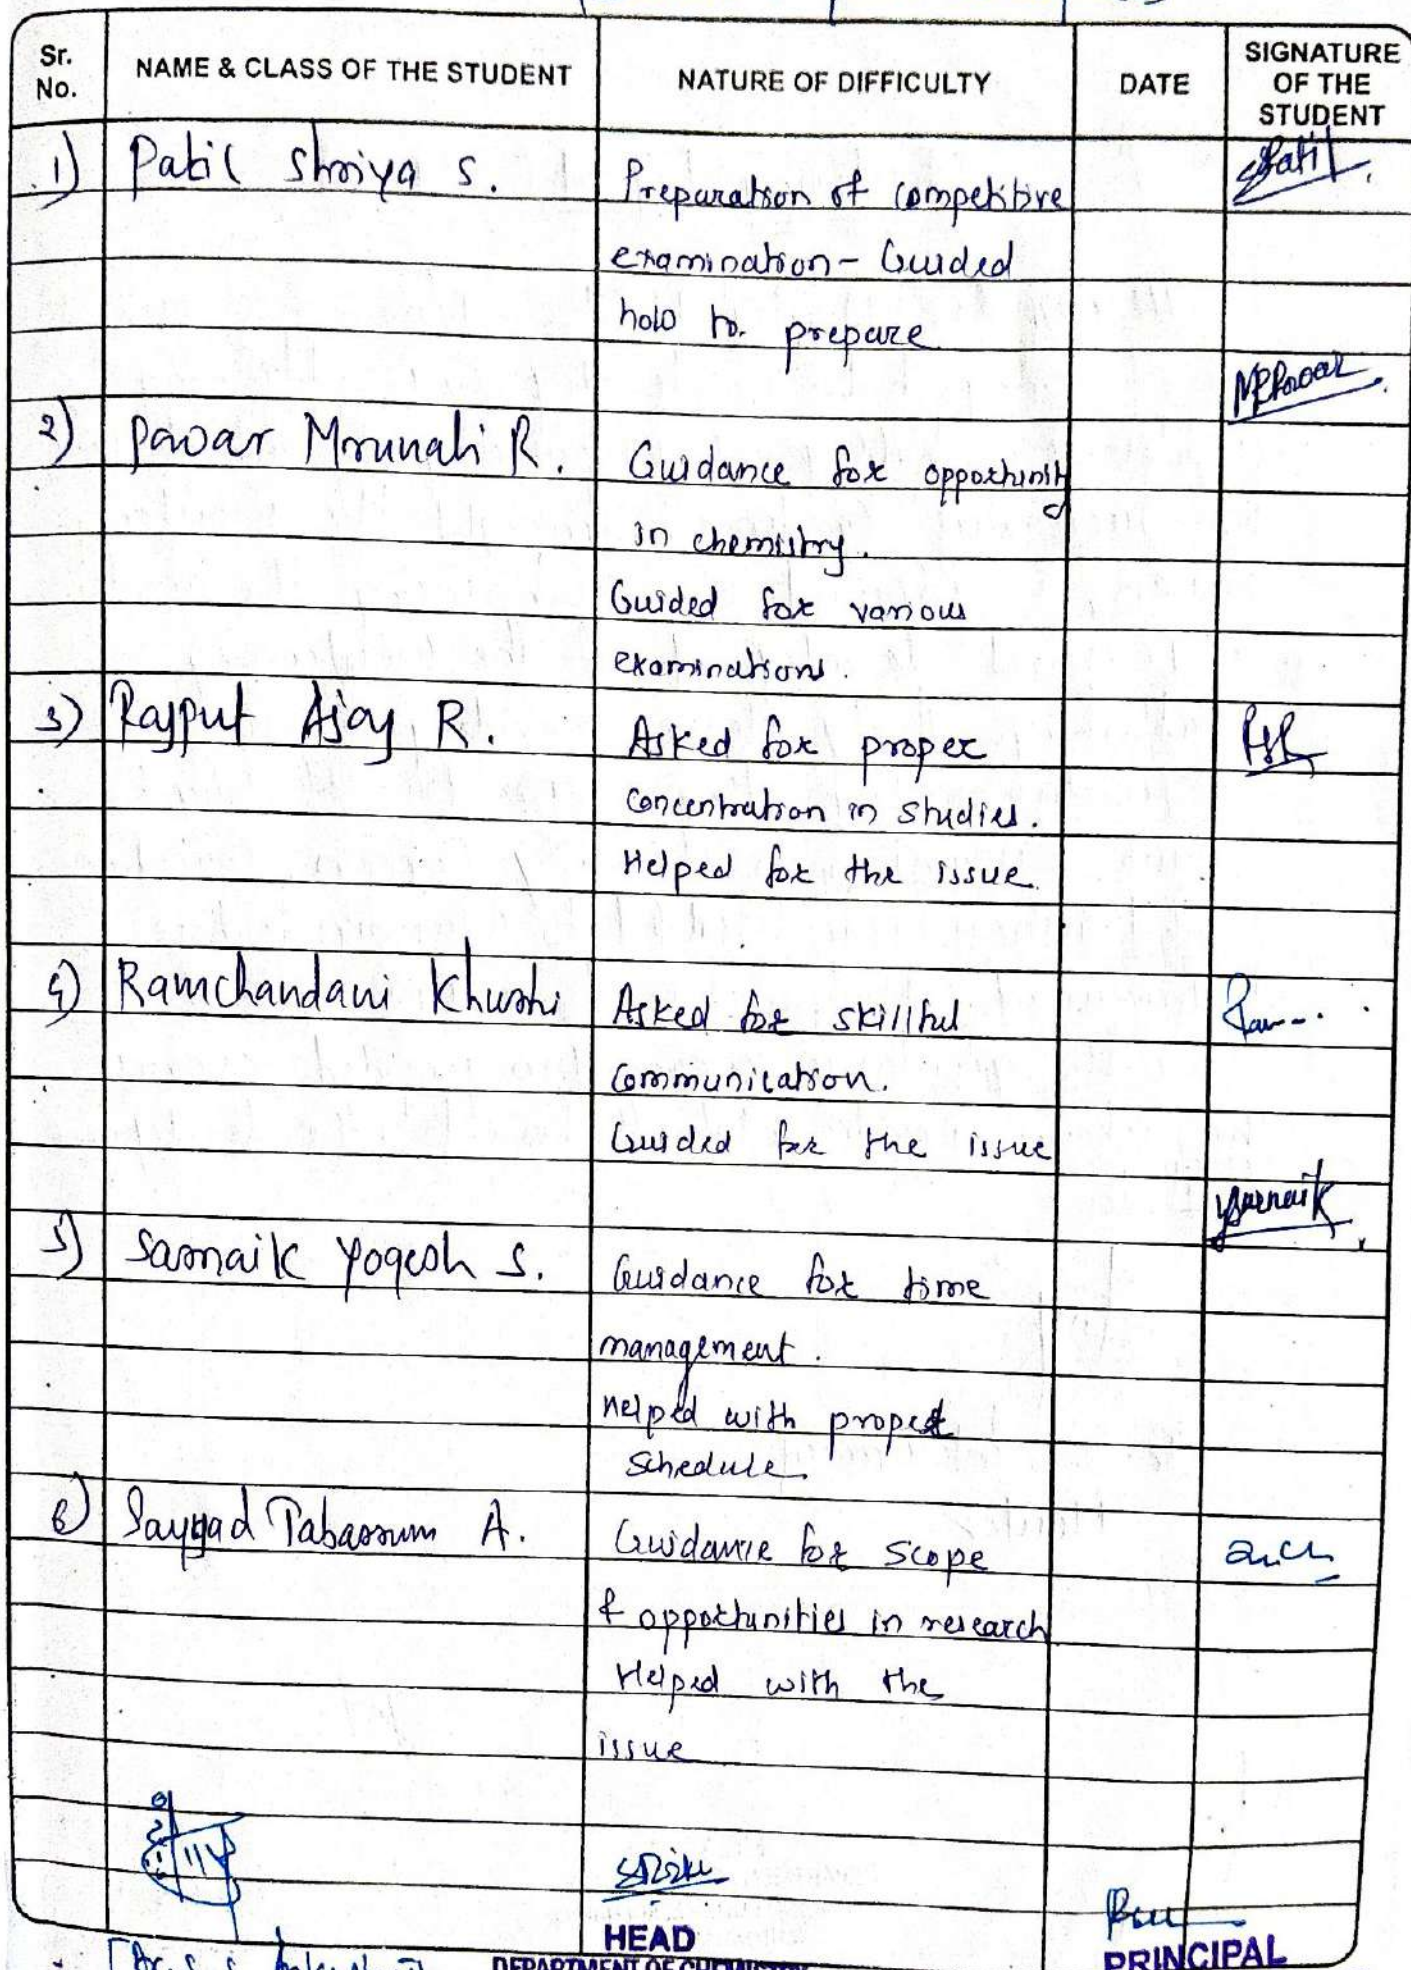 Sr. No. NAME & CLASS OF THE STUDENT NATURE OF DIFFICULTY DATE SIGNATURE OF THE STUDENT
1) Patil Shriya S. Preparation of competitive SPatil
examination - Guided
how to prepare
MRPawar
2) Pawar Mrunali R. Guidance for opportunity
in chemistry.
Guided for various
examinations.
3) Rajput Ajay R. Asked for proper
concentration in studies.
Helped for the issue
4) Ramchandani Khushi Asked for skillful Ram
communication.
Guided for the issue
YSarnaik
5) Sarnaik Yogesh S. Guidance for time
management.
Helped with proper
schedule
6) Sayyad Tabassum A. Guidance for scope
& opportunities in research
Helped with the
issue
HEAD
DEPARTMENT OF CHEMISTRY
PRINCIPAL
[Dr. S. S.